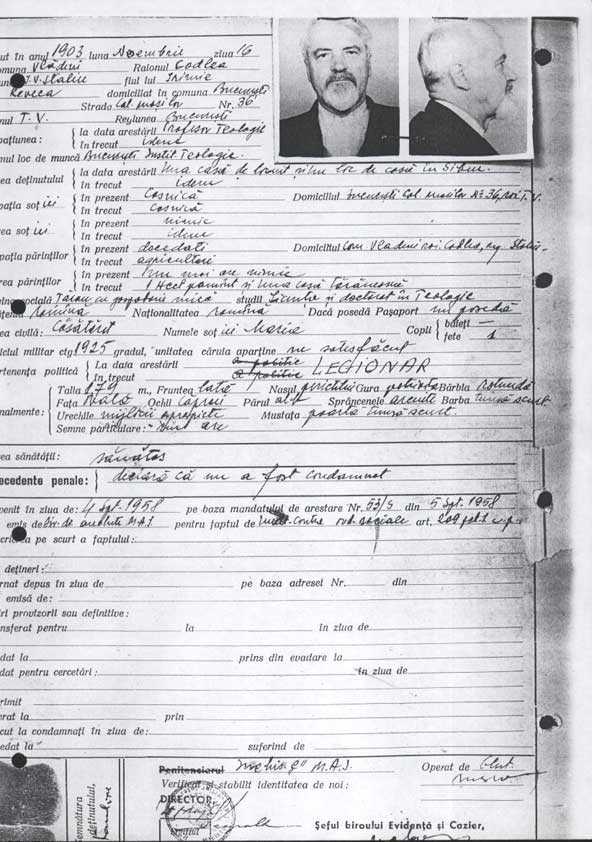 ut în anul 1903 luna Noembrie ziua 16
omuna Vlădeni Raionul Codlea
T.V. Stalin fiul lui Irimie
Reveca domiciliat în comuna București
Strada Cal. moșilor Nr. 36
nul T. V. Regiunea București
pațiunea: la data arestării Profesor Teologie
în trecut idem
nul loc de muncă București Instit Teologic.
rea deținutului la data arestării Una casă de locuit și un loc de casă în Sibiu.
în trecut idem
pația soț iei în prezent Casnică Domiciliul București Cal moșilor No 36, roi T. V.
în trecut casnică
rea soț iei în prezent nimic
în trecut idem
pația părinților în prezent decedati Domiciliul Com Vlădeni roi Codlea, reg. Stalin.
în trecut agricultori
rea părinților în prezent nu mai are nimic
în trecut 1 Hect pamînt și una casă țărănească
inea socială Țăran cu gospodărie mică studii Licența și doctorat în Teologie
Română Naționalitatea română Dacă posedă Pașaport nu posedă
rea civilă: Căsătorit Numele soț iei Maria Copii băieți —
fete 1
iciul militar ctg. 1925 gradul, unitatea căruia aparține nu satisfăcut
artenența politică La data arestării a politic
în trecut a politic LEGIONAR
Talia 179 m., Fruntea lată Nasul Gura potrivită Bărbia rotundă
Fața Ochii Caprui Părul alb Sprâncenele arcuite Barba tunsă scurt
nalmente: Urechile mijlocii apropiate Mustața poartă tunsă scurt.
Semne particulare: nu are
rea sănătății: sănătos
ecedente penale: declară că nu a fost condamnat
venit în ziua de: 4 Spt. 1958 pe baza mandatului de arestare Nr. 53/S din 5 Spt. 1958
emis de M.A.I. pentru faptul de contra art. 209
crierea pe scurt a faptului:
dețineri:
ernat depus în ziua de pe baza adresei Nr. din
emisă de:
ri provizorii sau definitive:
nsferat pentru la în ziua de
dat la prins din evadare la
dat pentru cercetări: în ziua de
rimit
erat la prin
cut la condamnați în ziua de:
edat la suferind de
Penitenciarul Închis. M.A.I. Operat de
Verificat și stabilit identitatea de noi:
DIRECTOR,
Șeful biroului Evidență și Cazier,
Semnătura
deținutului,